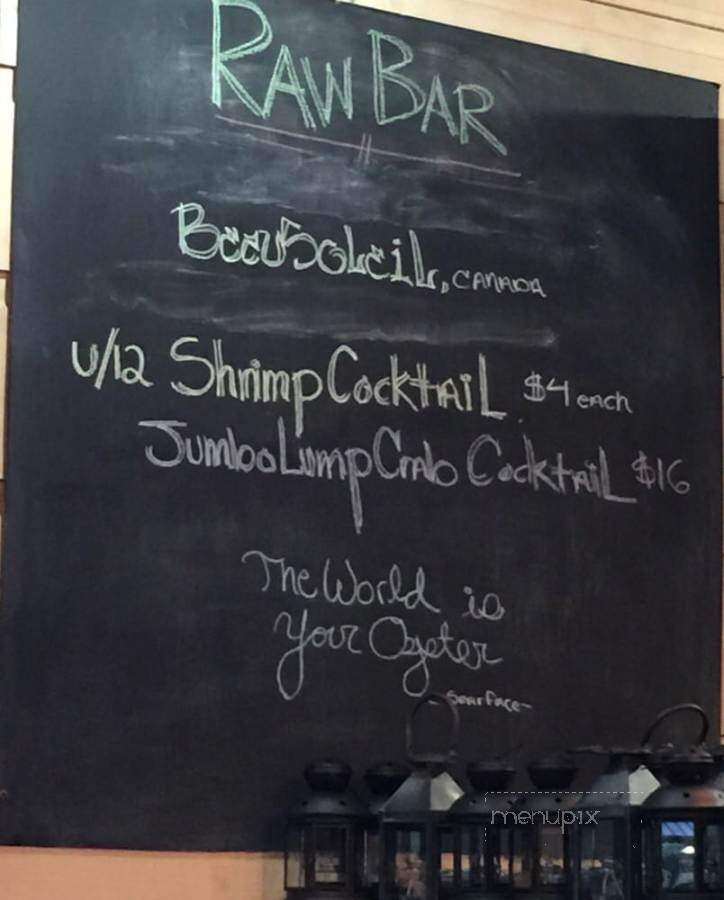 RAW BAR
BeauSoleil, CANADA
U/12 Shrimp Cocktail $4 each
Jumbo Lump Crab Cocktail $16
The World is
Your Oyster
- Scarface -
menupix